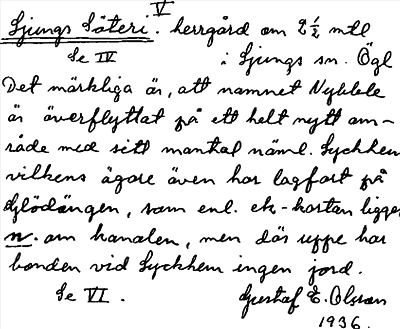 V
Ljungs Säteri. herrgård om 2 1/2 mtl
Se IV i Ljungs sn. Ögl
Det märkliga är, att namnet Nybble
är överflyttat på ett helt nytt om-
råde med sitt mantal näml. Lyckhem
vilkens ägare även har lagfart på
Glödängen, som enl. ek-kartan ligger
n. om kanalen, men där uppe har
bonden vid Lyckhem ingen jord.
Se VI. Gustaf E. Olsson
1936.